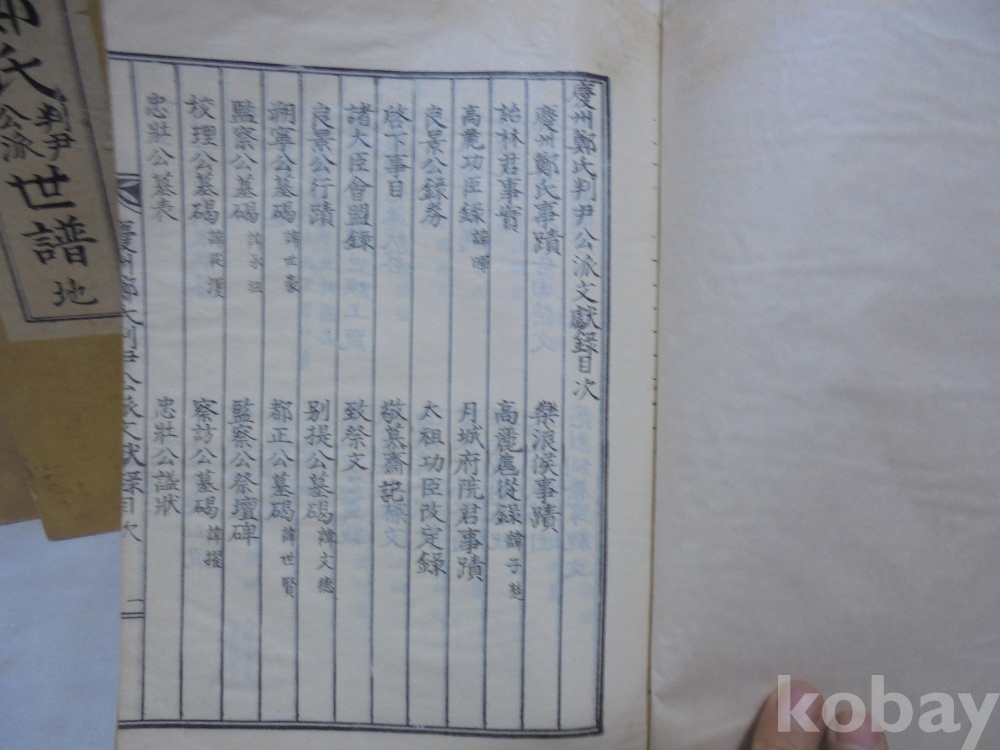 慶州鄭氏判尹公派文獻錄目次
慶州鄭氏事蹟 樂浪侯事蹟
始林君事實 高麗扈從錄 諱子楚
高麗功臣錄 諱暉 月城府院君事蹟
良景公錄券 太祖功臣改定錄
啓下事目 敬慕齋記
諸大臣會盟錄 致祭文
良景公行蹟 別提公墓碣 諱文德
朔寧公墓碣 諱世豪 都正公墓碣 諱世賢
監察公墓碣 監察公祭壇碑
校理公墓碣 察訪公墓碣 諱擢
忠壯公墓表 忠壯公諡狀
慶州鄭氏判尹公派文獻錄目次 一
鄭氏判尹公派世譜 地
kobay